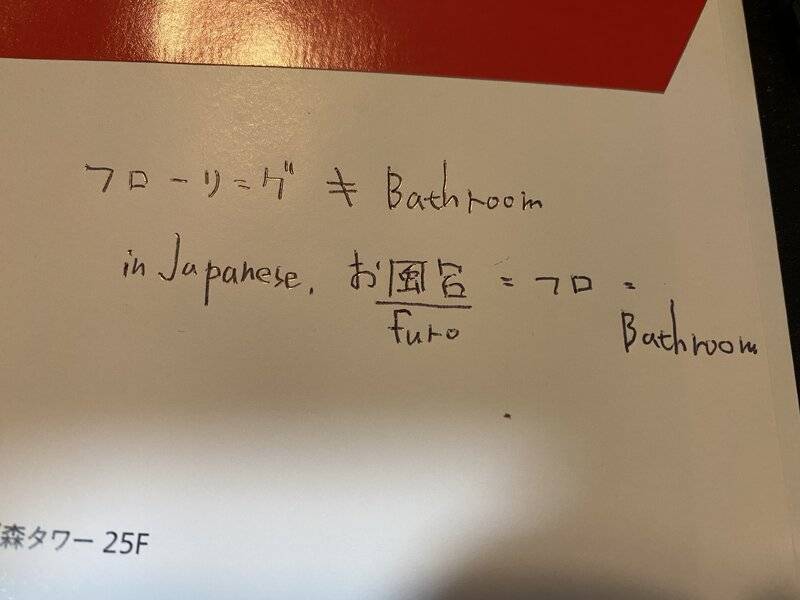 フローリング ≠ Bathroom
in Japanese. お風呂 = フロ =
furo
Bathroom
森タワー 25F